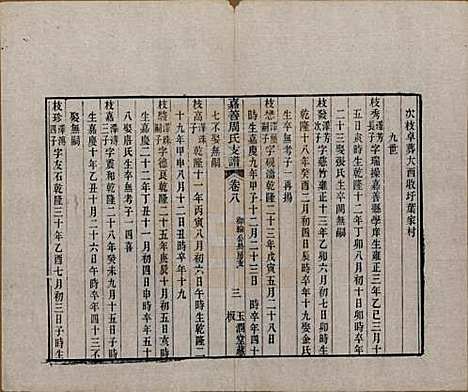 次枝阜葬大西收圩葉家村
九世
枝秀 澤芳長子 字瑞操嘉善縣學庠生雍正三年乙巳三月
五日寅時生乾隆十二年丁卯八月初十日卯時卒年
二十三娶張氏生卒闕無嗣
枝 澤芳次子 字 竹雍正十三年乙卯十月初六日卯時生
乾隆十八年癸酉二月初一日卯時卒年十九娶金氏
生卒無考子一再揚
枝 嗣子 字硯濤乾隆二十三年戊寅五月二十八日
時生嘉慶九年甲子十二月二十三日 時卒年四十
七不娶無嗣
嘉善周氏支譜 卷八 三 板 玉潤堂藏
枝高 澤珠長子 乾隆十一年丙寅八月初六日巳時生乾隆二
十九年甲申八月十七日時卒年十九
枝 澤珠嗣子 字德良乾隆二十五年庚辰十月初五日亥時
生嘉慶二十二年丁丑十一月初四日申時卒年五十
八娶唐氏生卒無考子一四喜
枝嘉 澤鴻三子 字貢和乾隆二十八年癸未九月十五日子時
生嘉慶十年乙丑十月二十六日午時卒年四十三不
娶無嗣
枝珍 澤鴻四子 字友石乾隆三十年乙酉七月初三日子時生